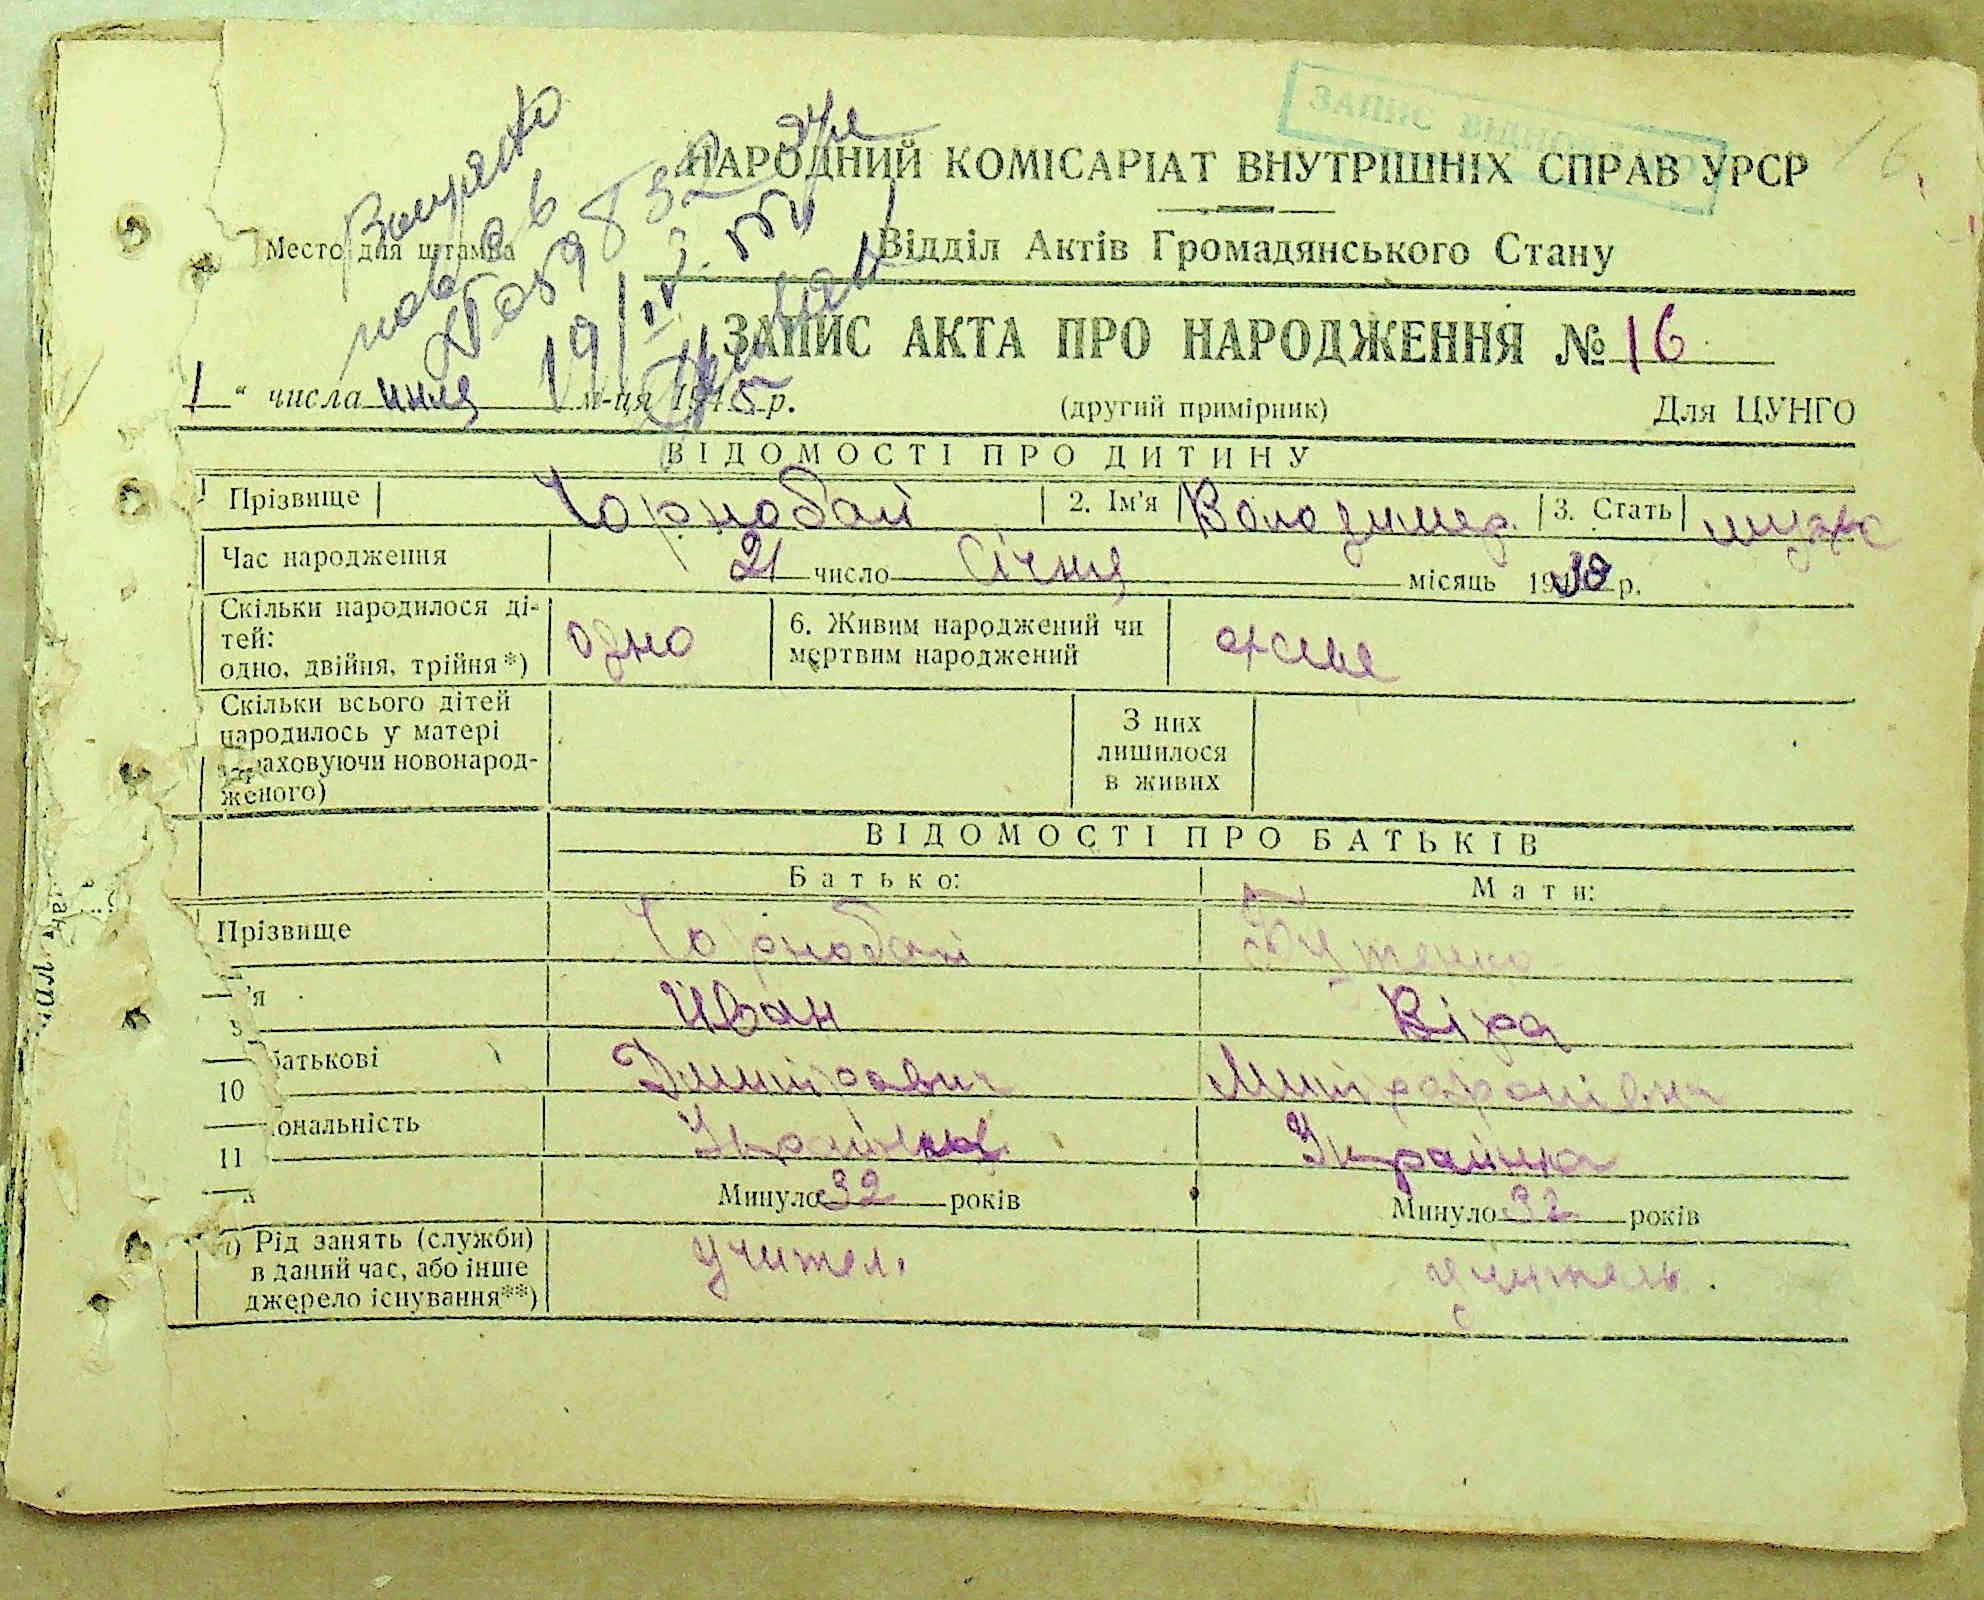 ЗАПИС ВІДНОВЛЕНО
НАРОДНИЙ КОМІСАРІАТ ВНУТРІШНІХ СПРАВ УРСР
Место для штампа
Відділ Актів Громадянського Стану
ЗАПИС АКТА ПРО НАРОДЖЕННЯ № 16
1 " числа июля м-ця 1945 р. (другий примірник) Для ЦУНГО
ВІДОМОСТІ ПРО ДИТИНУ
Прізвище Чорнобай 2. Ім'я Володимер 3. Стать мужс
Час народження 21 число Січня місяць 1939 р.
Скільки народилося ді-
тей:
одно, двійня, трійня*) одно 6. Живим народжений чи
мертвим народжений живе
Скільки всього дітей
народилось у матері
враховуючи новонарод-
женого)
З них
лишилося
в живих
ВІДОМОСТІ ПРО БАТЬКІВ
Батько: Мати:
Прізвище Чорнобай Бутенко
'я Иван Віра
батькові Дмитрович Митрофанівна
10
ональність Українец Українка
11
Минуло 32 років Минуло 32 років
Рід занять (служби)
в даний час, або інше
джерело існування**) учител. учитель.